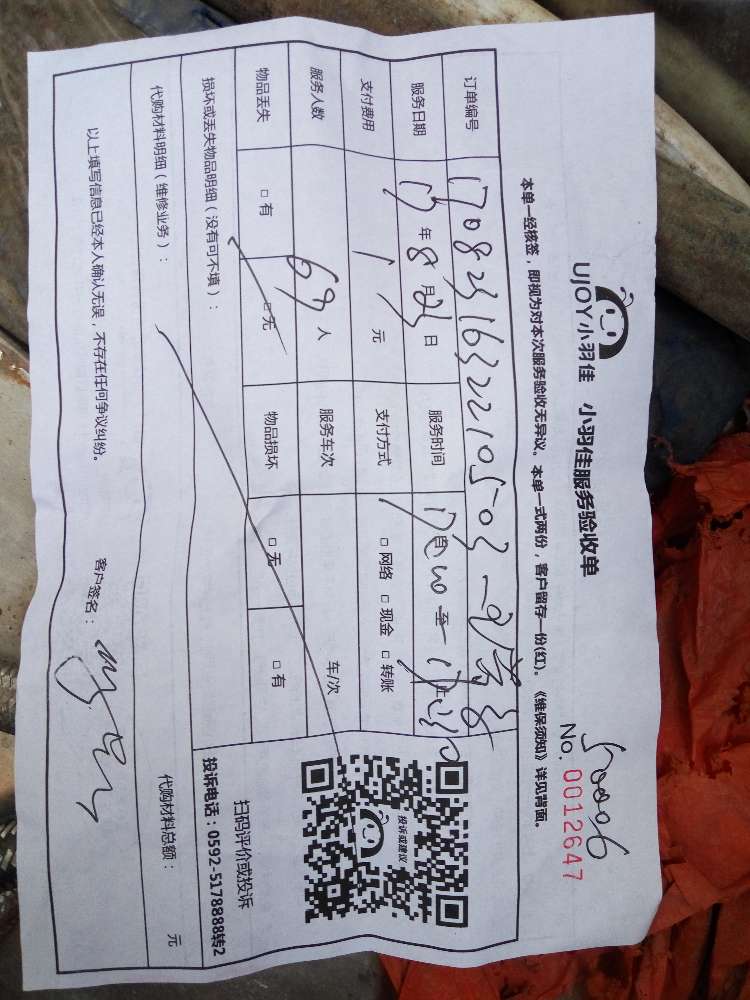 UJOY小羽佳 小羽佳服务验收单
50006
No. 0012647
本单一经核签，即视为对本次服务验收无异议。本单一式两份，客户留存一份(红)。《维保须知》详见背面。
订单编号
服务日期 17 年 8 月 23 日 服务时间 自 至 止
支付费用 1 元 支付方式 □ 网络 □ 现金 □ 转账
服务人数 人 服务车次 车/次
物品丢失 □ 有 □ 无 物品损坏 □ 无 □ 有
损坏或丢失物品明细（没有可不填）：
投诉或建议
扫码评价或投诉
投诉电话：0592-5178888转2
代购材料明细（维修业务）： 代购材料总额： 元
以上填写信息已经本人确认无误，不存在任何争议纠纷。 客户签名：